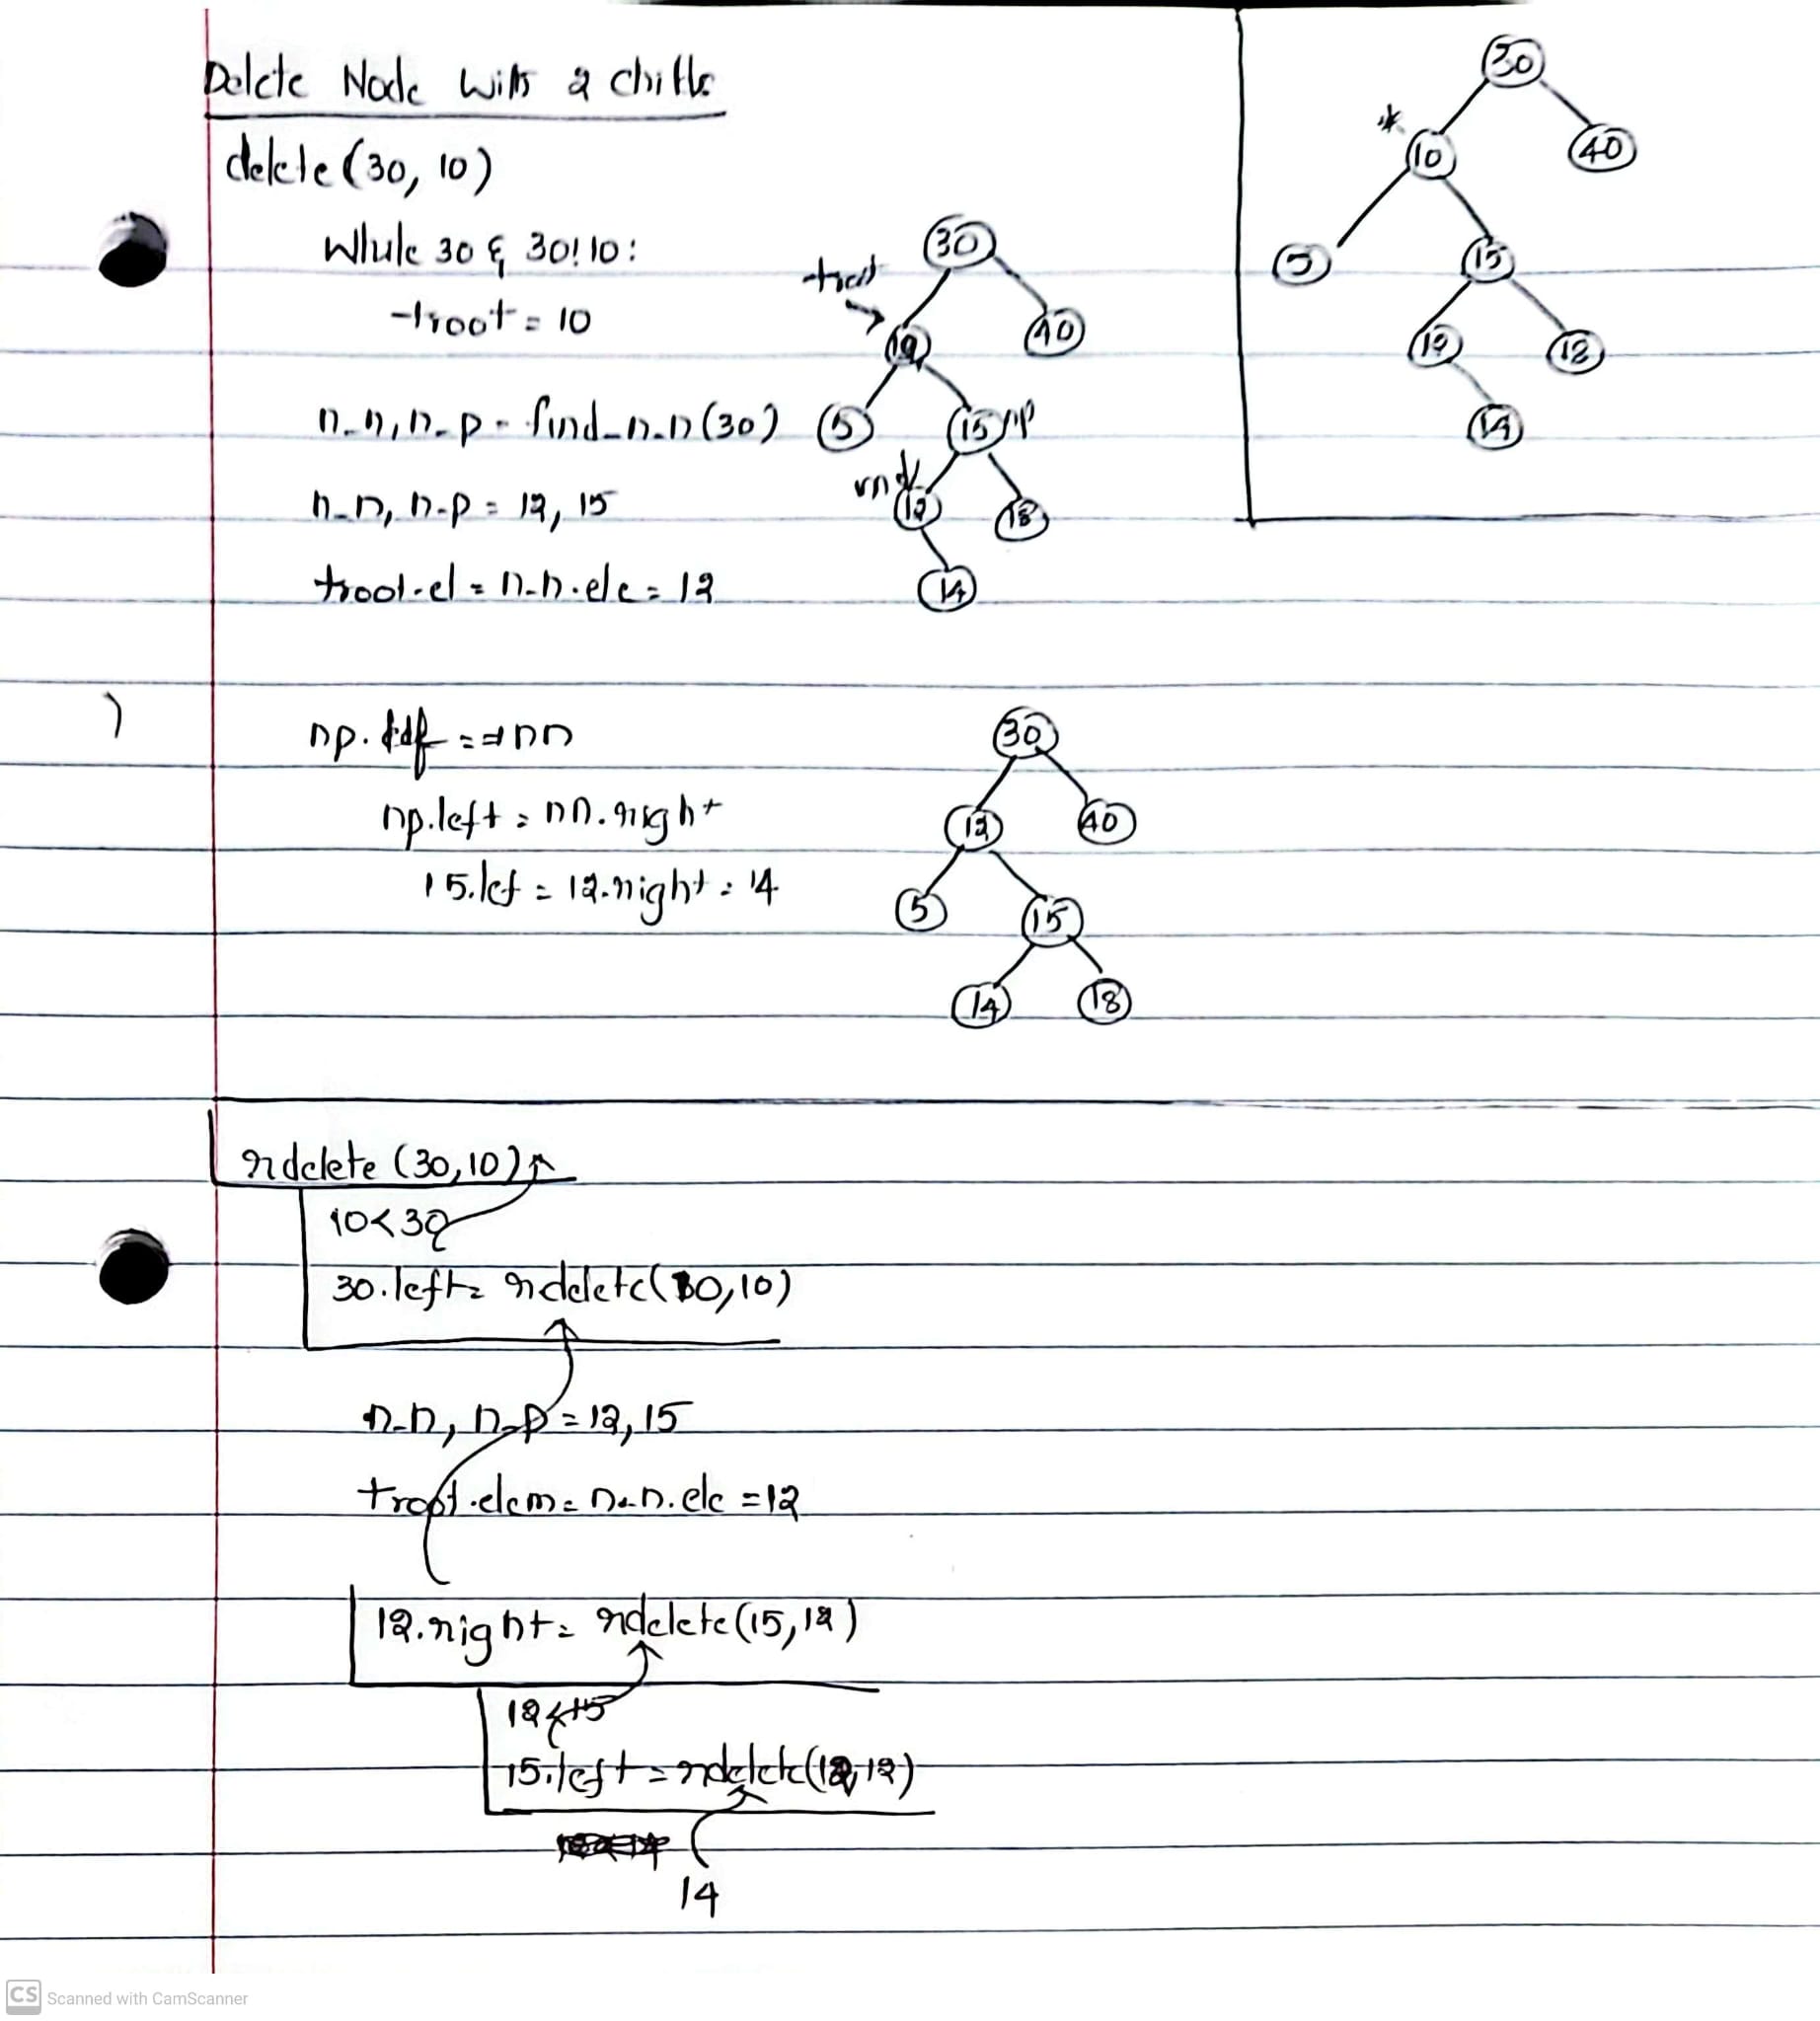 Delete Node with 2 childs
delete (30, 10)
While 30 & 30!10:
troot = 10
n_n, n_p = find_n_n (30)
n_n, n_p = 12, 15
troot.el = n_n.ele = 12
troot
30
10
40
5
15
np
12
18
14
*
30
10
40
5
15
12
18
14
np.left == nn
np.left = nn.right
15.lef = 12.right = 14
30
12
40
5
15
14
18
rdelete (30,10)
10<30
30.left = rdelete(10,10)
n_n, n_p = 12, 15
troot.elem = n_n.ele = 12
12.right = rdelete (15, 12)
12<15
15.left = rdelete (12,12)
14
CS Scanned with CamScanner